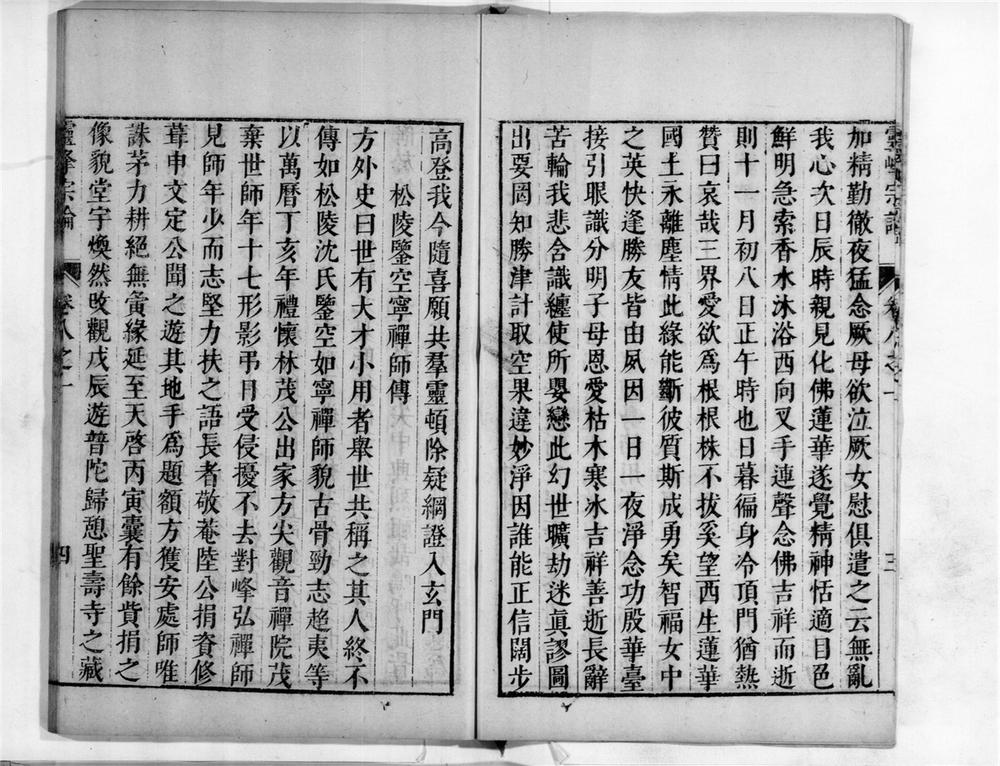 靈峰宗論
卷八之一
三
加精勤徹夜猛念厥母欲泣厥女慰俱遣之云無亂
我心次日辰時親見化佛蓮華遂覺精神恬適目色
鮮明急索香水沐浴西向叉手連聲念佛吉祥而逝
則十一月初八日正午時也日暮徧身冷頂門猶熱
贊曰哀哉三界愛欲爲根根株不拔奚望西生蓮華
國土永離塵情此緣能斷彼質斯成勇矣智福女中
之英快逢勝友皆由夙因一日一夜淨念功殷華臺
接引眼識分明子母恩愛枯木寒冰吉祥善逝長辭
苦輪我悲含識纏使所嬰戀此幻世曠劫迷眞謬圖
出要罔知勝津計取空果違妙淨因誰能正信闊步
高登我今隨喜願共羣靈頓除疑網證入玄門
松陵鑒空寧禪師傳
方外史曰世有大才小用者舉世共稱之其人終不
傳如松陵沈氏鑒空如寧禪師貌古骨勁志趂夷等
以萬曆丁亥年禮懷林茂公出家方尖觀音禪院茂
棄世師年十七形影弔月受侵擾不去對峰弘禪師
見師年少而志堅力扶之語長者敬菴陸公捐資修
葺申文定公聞之遊其地手爲題額方獲安處師唯
誅茅力耕絕無夤緣延至天啓丙寅囊有餘貲捐之
像貌堂宇煥然改觀戊辰遊普陀歸憩聖壽寺之藏
靈峰宗論
卷八之一
四